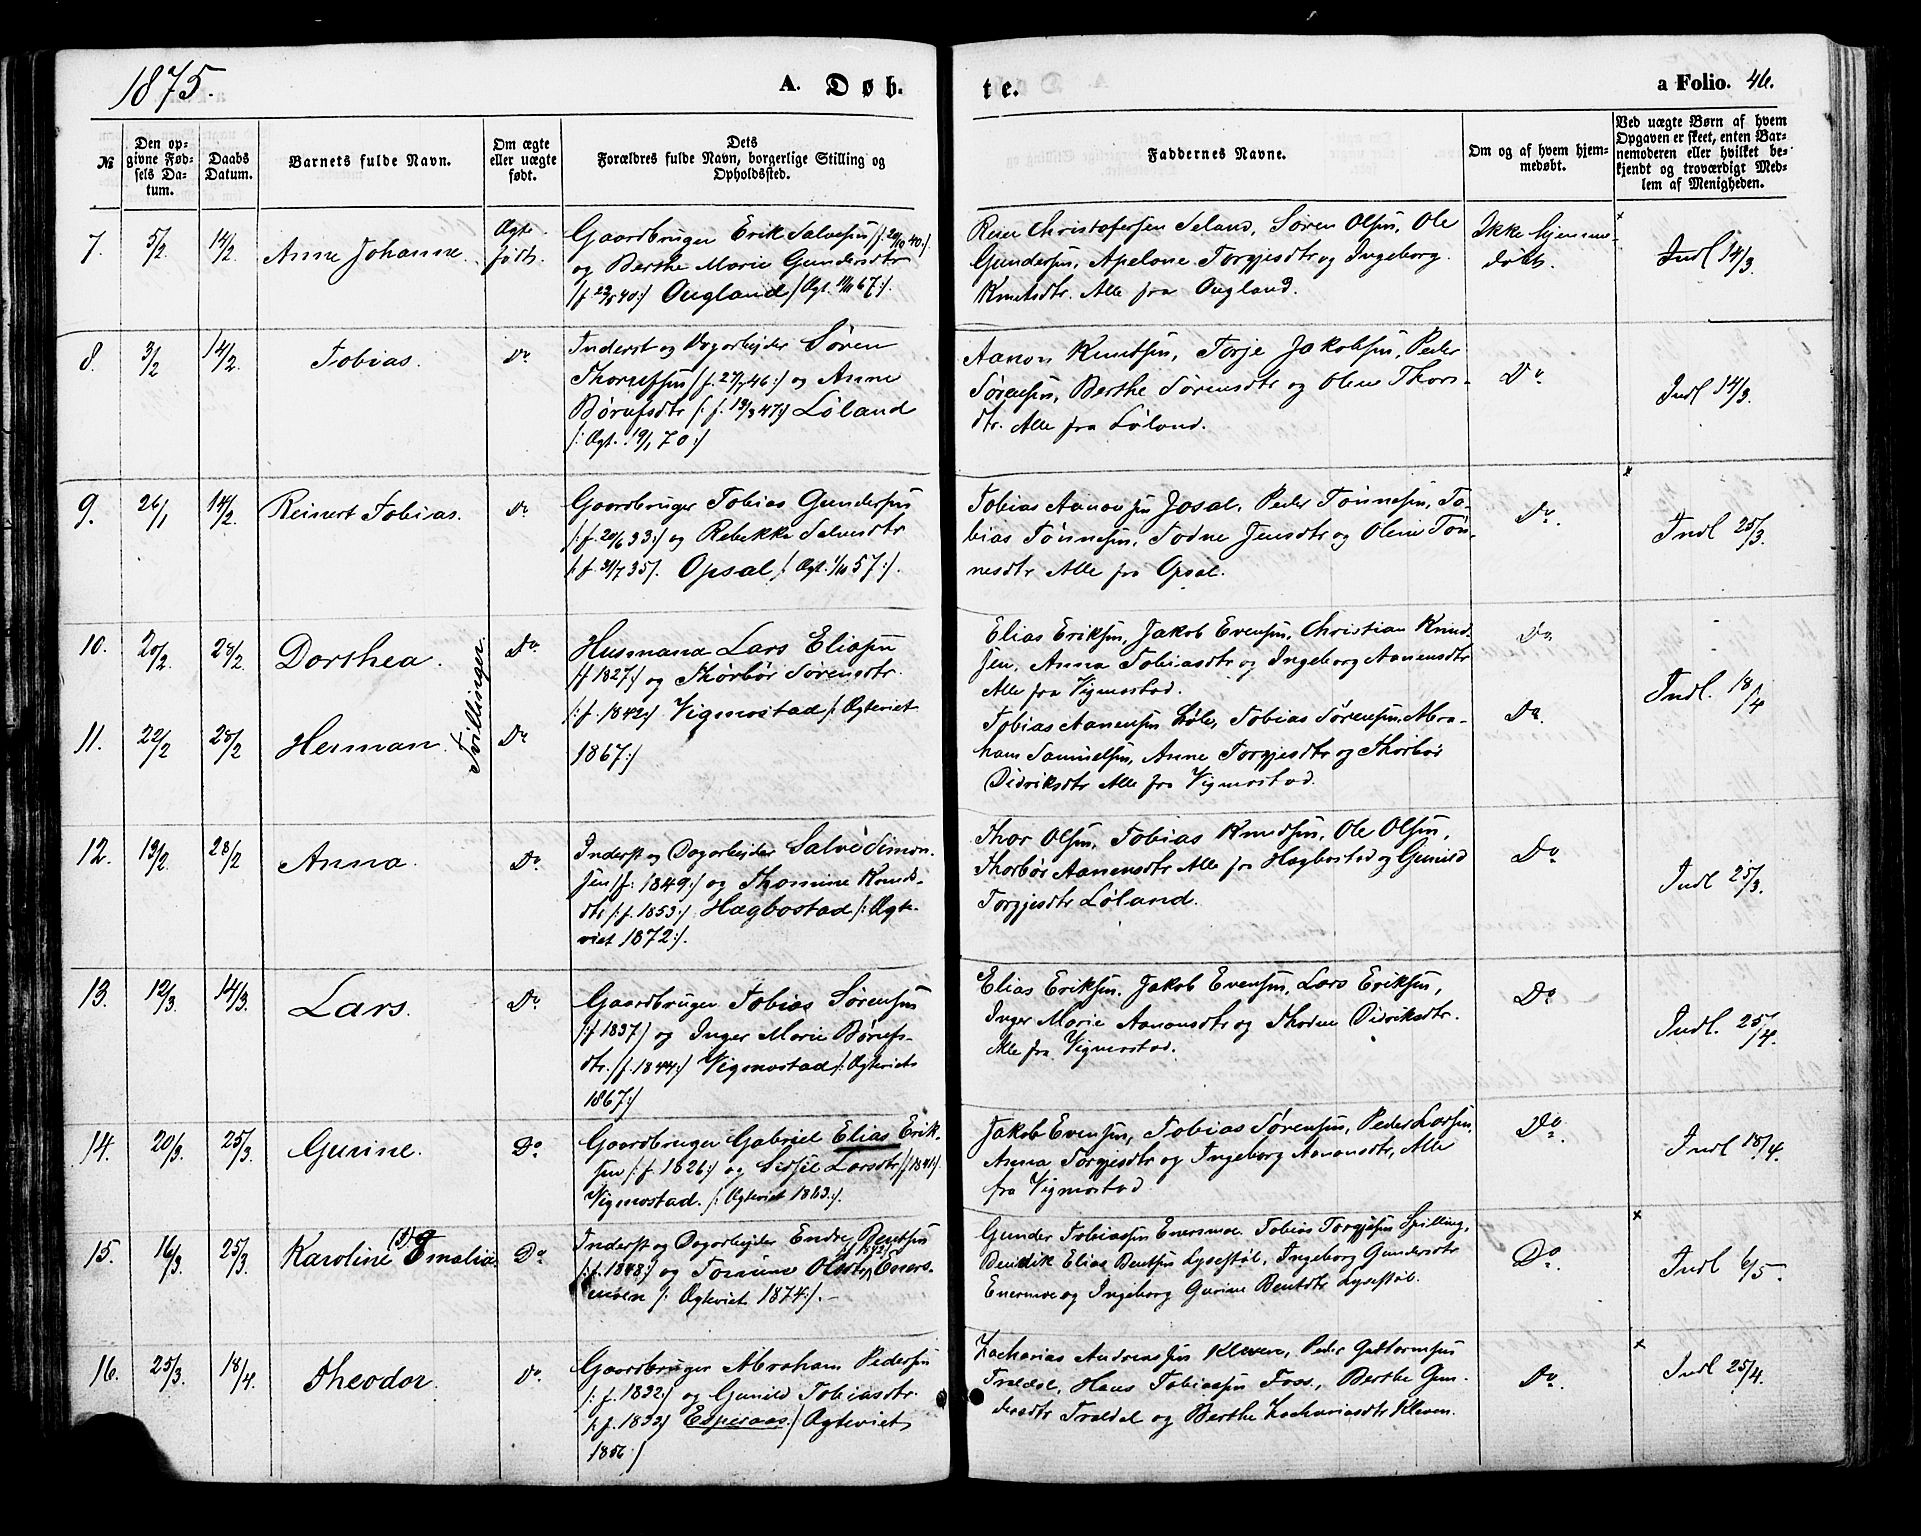 1875.
A. Døb-
te.
a Folio. 46.
№
Den op-
givne Fød-
sels Da-
tum.
Daabs
Datum.
Barnets fulde Navn.
Om ægte
eller uægte
født.
Dets
Forældres fulde Navn, borgerlige Stilling og
Opholdssted.
Faddernes Navne.
Om og af hvem hjem-
medøbt.
Ved uægte Børn af hvem
Opgaven er skeet, enten Bar-
nemoderen eller hvilket be-
kjendt og troværdigt Med-
lem af Menigheden.
7. 5/2 14/2. Anne Johanne.
Ægte
født.
Gaardbruger Erik Salvesen
og Berthe Marie Gundersdtr
Øugland
Reier Christofersen Seland, Søren Olsen, Ole
Gundersen, Apelone Torgjesdtr og Ingeborg
Knutsdtr. Alle fra Ougland.
Ikke hjemme-
døbt.
Indl 14/3.
8. 3/2 14/2. Tobias. Do
Inderst og Dagarbejder Søren
/: f. 27/7 46 :/ og Anne
Løland
Aanon Knutsen, Torje Jakobsen, Peder
Sørensen, Berthe Sørensdtr og Oline Thors-
dtr. Alle fra Løland.
Do
Indl 14/3.
9. 26/1 14/2. Reinert Tobias. Do
Gaardbruger Tobias Gundersen
/: f. 20/6 33 :/ og Rebekke Salvesdtr
Opsal
Tobias Aanonsen Josal, Peder Tønnesen, To-
bias Tønnesen, Todne Jensdtr og Oline Tøn-
nesdtr Alle fra Opsal.
Do.
Indl 25/3.
10. 20/2 28/2 Dorthea. Do
Tvillinger
Husmand Lars Eliasen
/: f 1827 :/ og Thorbør Sørensdtr.
/: f. 1842 :/ Vigmostad /: Ægteviet
1867 :/
Elias Eriksen, Jakob Evensen, Christian Knud-
sen, Anna Tobiasdtr og Ingeborg Aanensdtr
Alle fra Vigmostad.
Do
Indl. 18/4
11. 22/2 28/2 Herman. Do
Tobias Aanensen Tobias Sørensen, Abra-
ham Samuelsen, Anne Torgjesdtr og Thorbør
Didriksdtr Alle fra Vigmostad.
Do.
12. 13/2. 28/2 Anna. Do
Inderst og Dagarbejder Salve Simon-
sen /: f: 1849 :/ og Thomine Knuds-
dtr /: f. 1853 :/ Hægbostad /: Ægte-
viet 1872 :/.
Thor Olsen, Tobias Knudsen, Ole Olsen,
Thorbør Aanensdtr Alle fra Hægbostad og Gunild
Torgjesdtr Løland.
Do
Indl 25/3.
13. 12/3. 14/3. Lars. Do
Gaardbruger Tobias Sørensen
/: f 1837 :/ og Inger Marie Børufs-
dtr. /: f. 1844 :/ Vigmostad /: Ægteviet
1867 :/
Elias Eriksen. Jakob Evensen, Lars Eriksen,
Inger Marie Aanonsdtr og Thodne Didriksdtr.
Alle fra Vigmostad.
Do
Indl. 25/4.
14. 20/3. 25/3. Gurine. Do
Gaardbruger Gabriel Elias Erik-
sen /: f. 1826 :/ og Sidsel Larsdtr /: f 1841 :/
Vigmostad. /: Ægteviet 1863 :/.
Jakob Evensen, Tobias Sørensen, Peder Larsen,
Anna Torgjesdtr og Ingeborg Aanonsdtr, Alle
fra Vigmostad
Do.
Indl 18/4.
15. 16/3. 25/3. Karoline Emalia Do
Inderst og Dagarbejder Endre Bentsen
/: f. 1848 :/ og Tomine Olsdtr Eners-
moen /: Ægteviet 1874 :/. -
Gunder Tobiassen Enersmoe. Tobias Torgjesen Spilling,
Bendik Elias Bentsen Lysestøl, Ingeborg Gundersdtr
Enermoe og Ingeborg Gurine Bentsdtr Lysestøl.
Do.
Indl 6/5.
16. 25/3. 18/4. Theodor. Do.
Gaardbruger Abraham Pedersen
/: f. 1832 :/ og Gunild Tobiasdtr.
/: f. 1832 :/ Esperaas. /: Ægteviet
1856 :/
Zacharias Andreassen Kleven, Peder Guttormsen
Traldal, Hans Tobiassen Foss, Berthe Gun-
dersdtr Traldal og Berthe Zachariasdtr Kleven.
Do.
Indl 25/4.